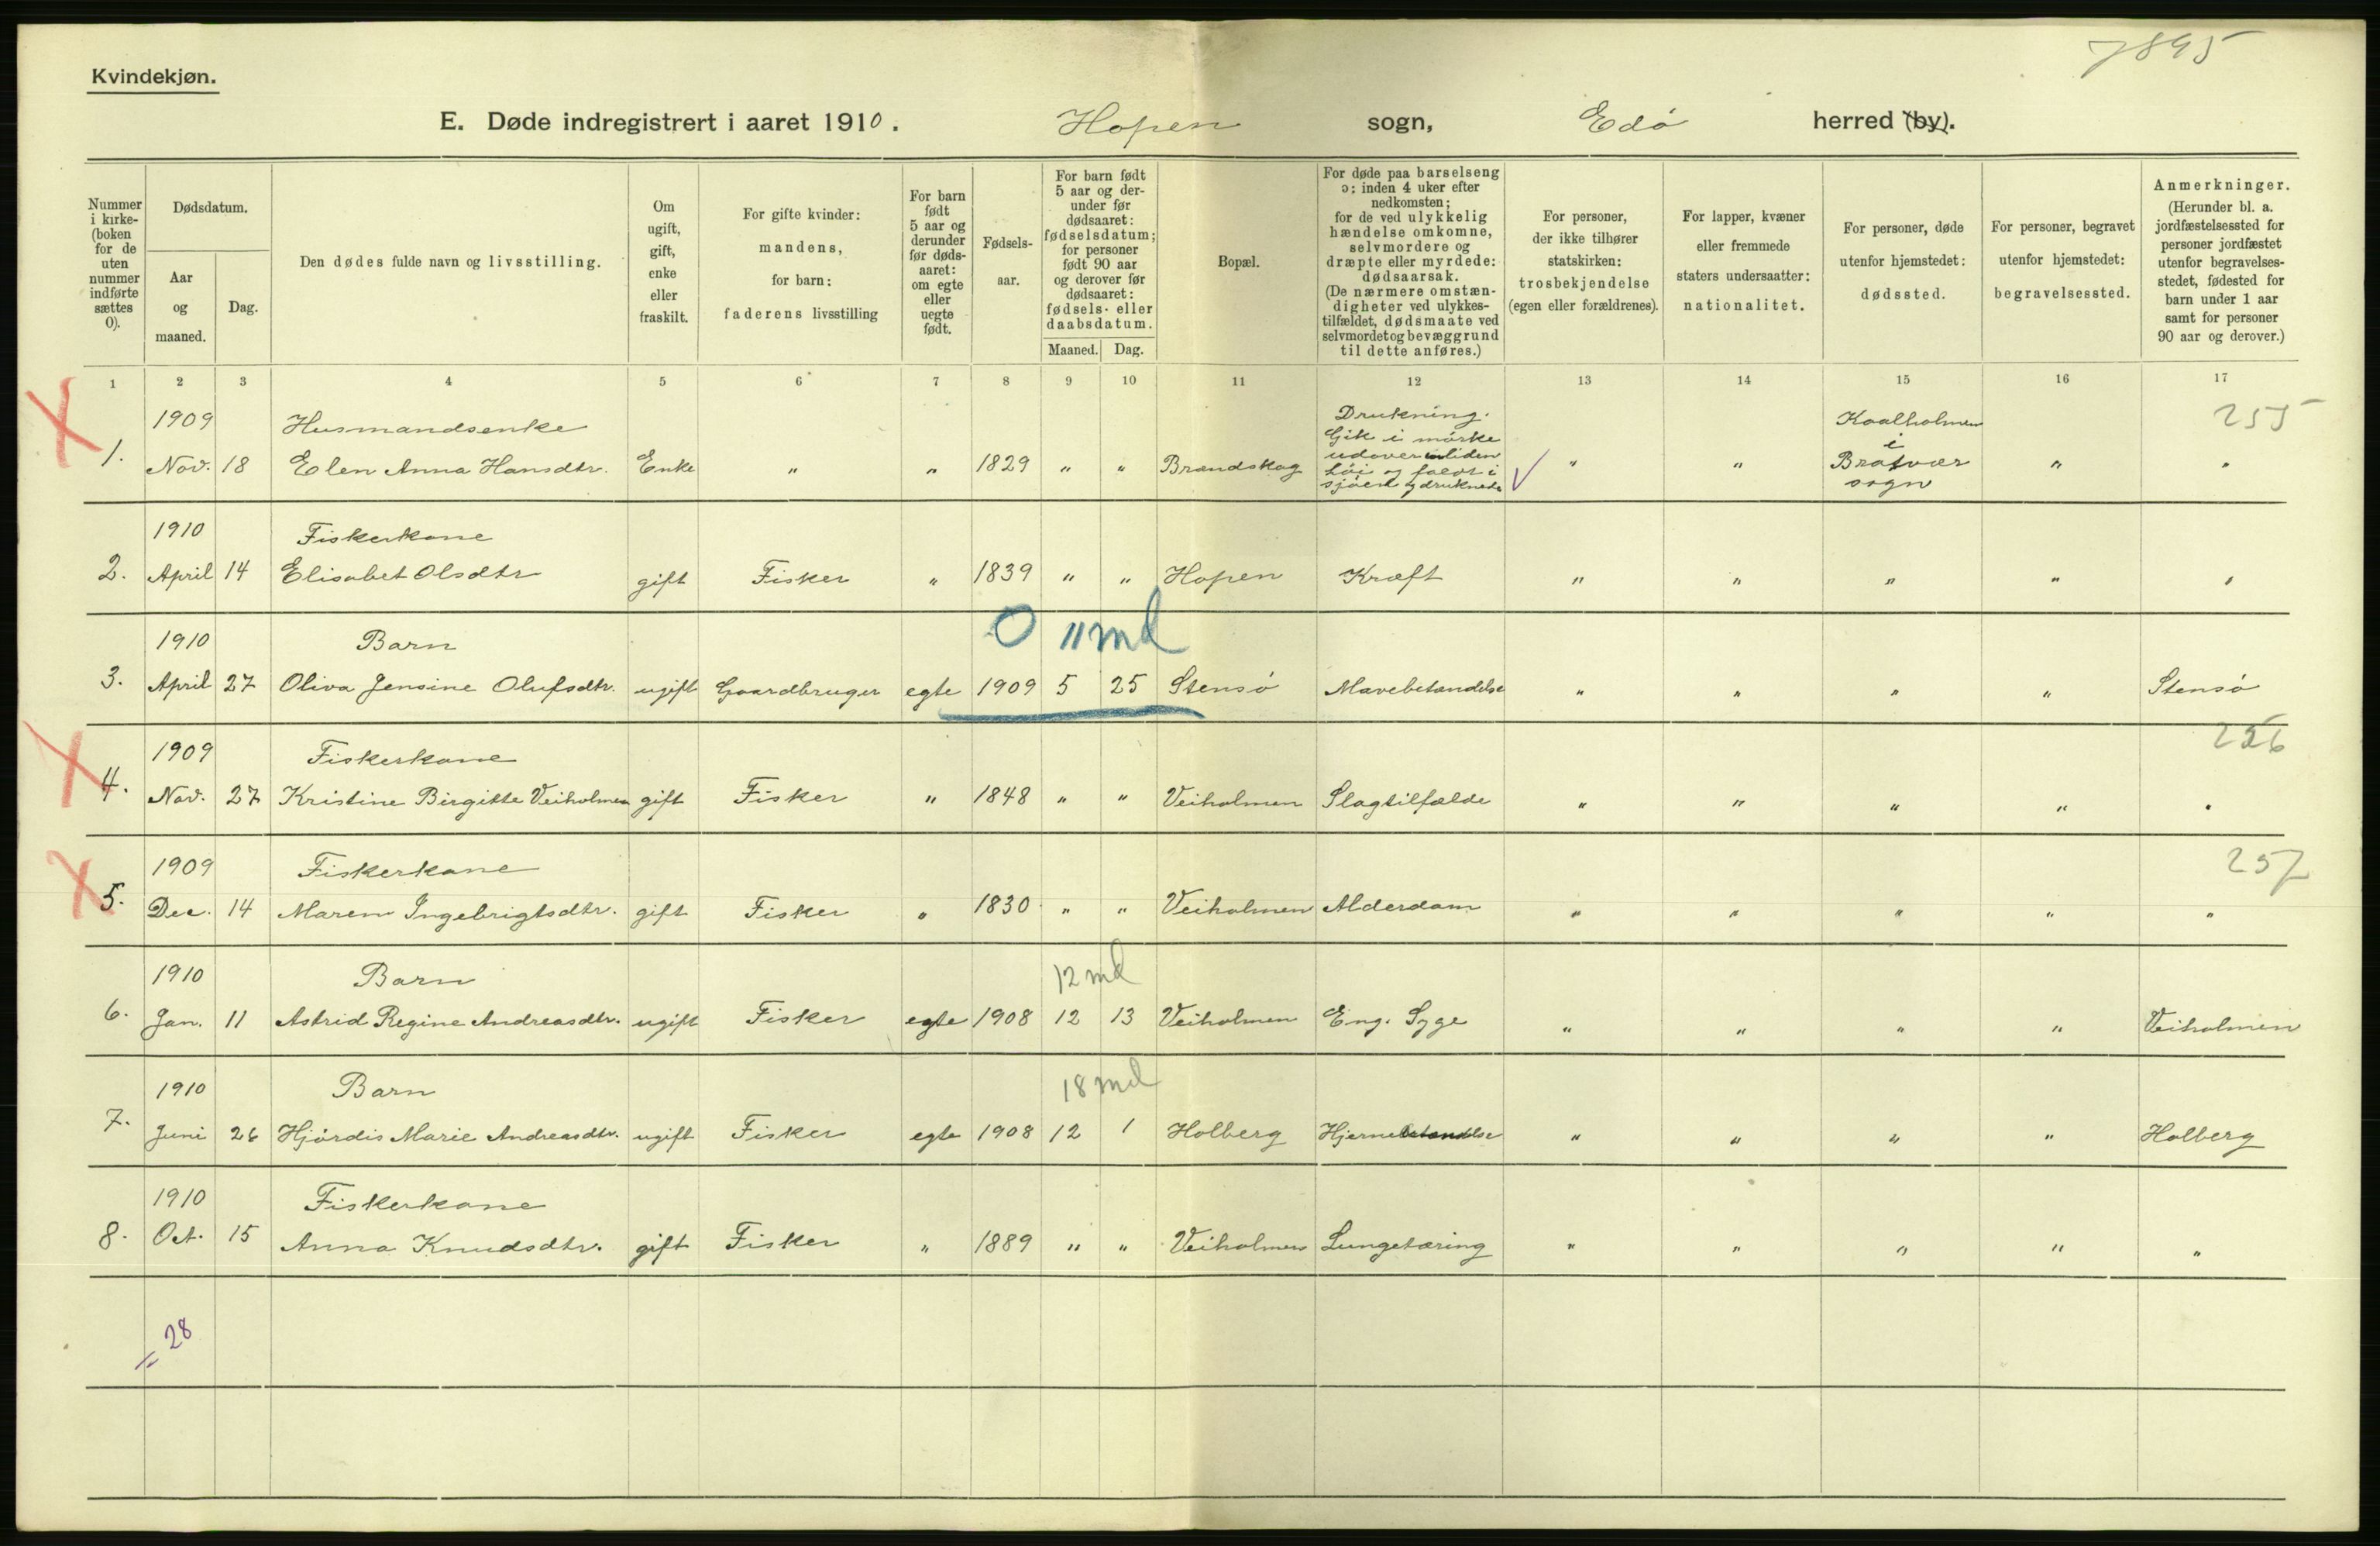 7895
Kvindekjøn.
E. Døde indregistrert i aaret 1910. Hopen sogn, Edø herred (by).
Nummer i kirke-(boken for de uten nummer indførte sættes 0).
Dødsdatum.
Aar og maaned.
Dag.
Den dødes fulde navn og livsstilling.
Om ugift, gift, enke eller fraskilt.
For gifte kvinder: mandens, for barn: faderens livsstilling
For barn født 5 aar og derunder før døds-aaret: om egte eller uegte født.
Fødsels-aar.
For barn født 5 aar og der-under før dødsaaret: fødselsdatum; for personer født 90 aar og derover før dødsaaret: fødsels- eller daabsdatum.
Maaned. Dag.
Bopæl.
For døde paa barselseng ɔ: inden 4 uker efter nedkomsten; for de ved ulykkelig hændelse omkomne, selvmordere og dræpte eller myrdede: dødsaarsak. (De nærmere omstæn-digheter ved ulykkes-tilfældet, dødsmaate ved selvmordet og bevæggrund til dette anføres.)
For personer, der ikke tilhører statskirken: trosbekjendelse (egen eller forældrenes).
For lapper, kvæner eller fremmede staters undersaatter: nationalitet.
For personer, døde utenfor hjemstedet: dødssted.
For personer, begravet utenfor hjemstedet: begravelsessted.
Anmerkninger. (Herunder bl. a. jordfæstelsessted for personer jordfæstet utenfor begravelses-stedet, fødested for barn under 1 aar samt for personer 90 aar og derover.)
1 2 3 4 5 6 7 8 9 10 11 12 13 14 15 16 17
1909 Husmandsenke Drukning. Kaalholmen 255
Gik i mørke i
1. Nov. 18 Elen Anna Hansdtr. Enke " " 1829 " " Brandskog udover en liden høi og faldt i sjøen og druknede " " Bratvær sogn " "
1910 Fiskerkone
2. April 14 Elisabet Olsdtr gift Fisker " 1839 " " Hopen Kræft " " " " "
1910 Barn 0 11 md
3. April 27 Oliva Jensine Olufsdtr. ugift Gaardbruger egte 1909 5 25 Stensø Mavebetændelse " " " " Stensø
1909 Fiskerkone 256
4. Nov. 27 Kristine Birgitte Veiholmen gift Fisker " 1848 " " Veiholmen Slagtilfælde " " " " "
1909 Fiskerkone 257
5. Dec. 14 Maren Ingebrigtsdtr. gift Fisker " 1830 " " Veiholmen Alderdom " " " " "
1910 Barn 12 md
6. Jan. 11 Astrid Regine Andreasdtr. ugift Fisker egte 1908 12 13 Veiholmen Eng. Syge " " " " Veiholmen
1910 Barn 18 md
7. Juni 26 Hjørdis Marie Andreasdtr. ugift Fisker egte 1908 12 1 Holberg Hjernebetændelse " " " " Holberg
1910 Fiskerkone
8. Oct. 15 Anna Knudsdtr. gift Fisker " 1889 " " Veiholmen Lungetæring " " " " "
= 28